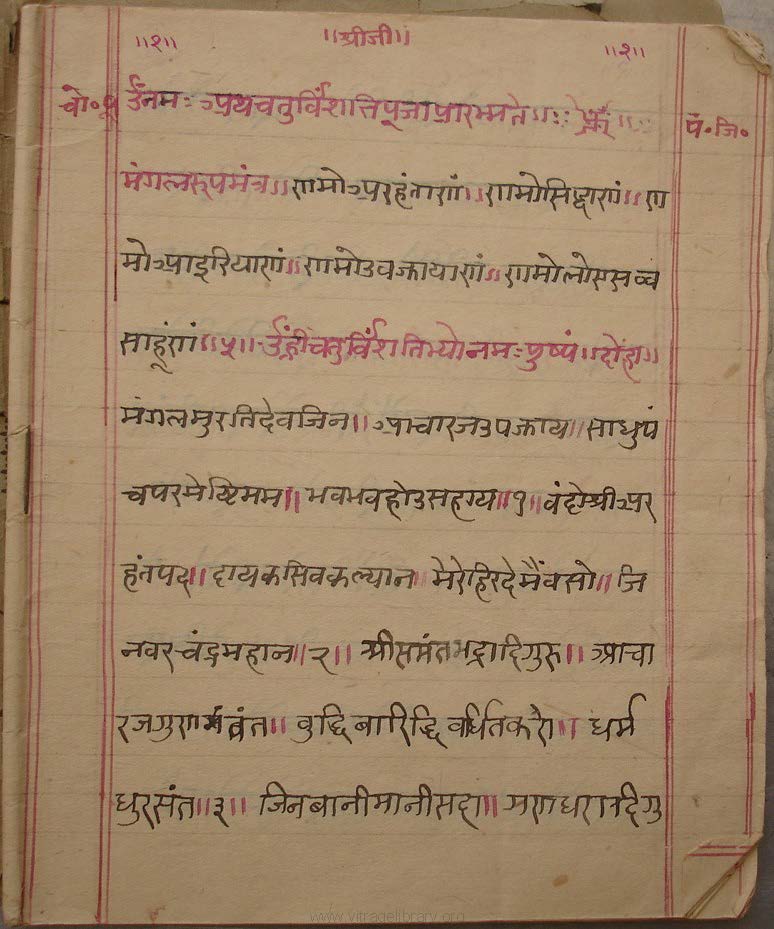 ॥१॥ ॥श्रीजी॥ ॥१॥
चो॰पू ॐनमः अथचतुर्विंशतिपूजाप्रारम्भते॥ः पं॰जि॰
मंगलरूपमंत्र॥णमोअरहंताणं॥णमोसिद्धाणं॥ण
मोआइरियाणं॥णमोउवज्झायाणं॥णमोलोएसव्व
साहूंणं॥५॥ॐह्रींचतुर्विंशतिभ्योनमःपुष्पं॥दोहा॥
मंगलमुरतिदेवजिन॥आचारजउपझाय॥साधुपं
चपरमेष्टिमम॥भवभवहोउसहाय॥१॥वंदोश्रीअर
हंतपद॥दायकसिवकल्यान॥मेरेहिरदेमैंवसो॥जि
नवरचंद्रमहान॥२॥श्रीसमंतभद्रादिगुरु॥आचा
रजगुणवंत॥वुद्धिबारिद्धिवर्धितकरो॥धर्म
धुरसंत॥३॥जिनबानीमानीसदा॥गु
www.vitragelibrary.org